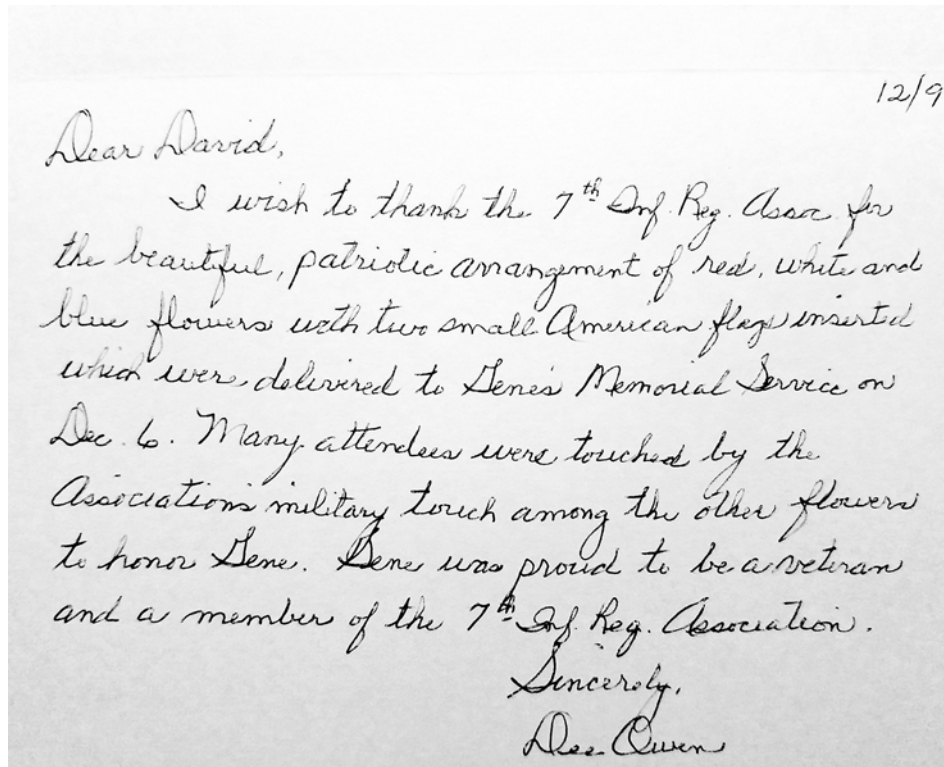 12/9
Dear David,
I wish to thank the 7th Inf. Reg. Assoc. for
the beautiful, patriotic arrangement of red, white and
blue flowers with two small American flags inserted
which were delivered to Gene's Memorial Service on
Dec. 6. Many attendees were touched by the
Association's military touch among the other flowers
to honor Gene. Gene was proud to be a veteran
and a member of the 7th Inf. Reg. Association.
Sincerely,
Dee Owen